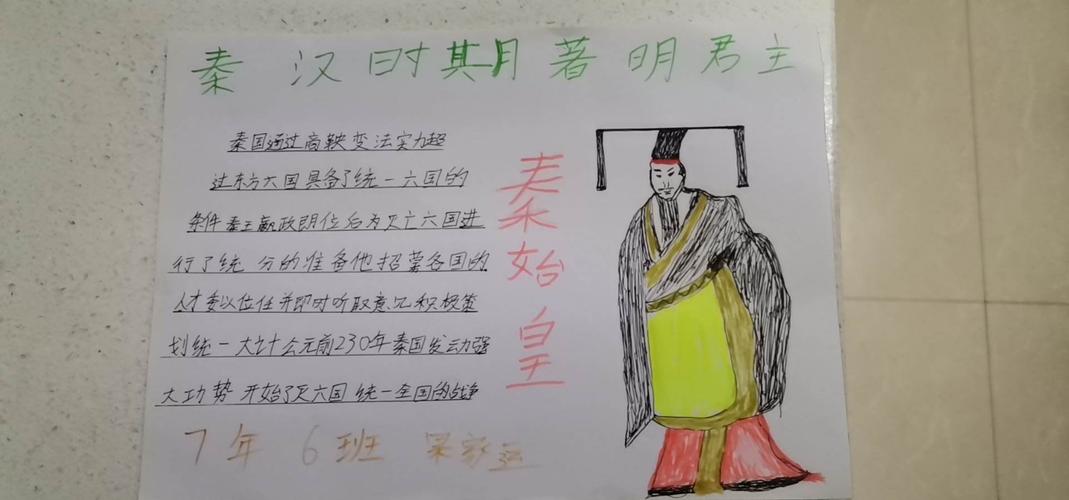 秦汉时期著明君主
秦国通过商鞅变法实力超
过东方大国具备了统一六国的
条件秦王嬴政即位后为灭亡六国进
行了统分的准备他招募各国的
人才委以位任并即时听取意见积极策
划统一大计公元前230年秦国发动强
大功势开始了灭六国统一全国的战争
秦始皇
7年6班